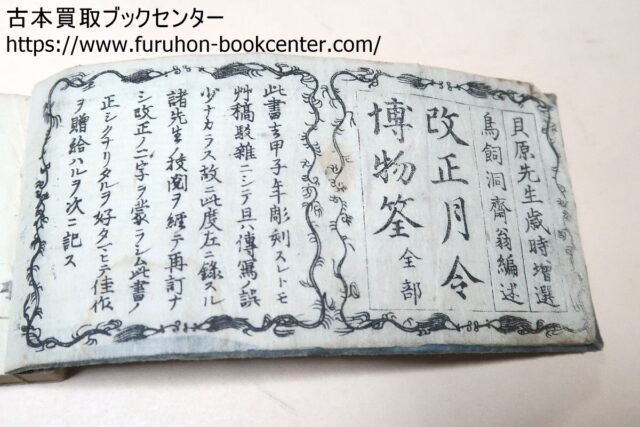 古本買取ブックセンター
https://www.furuhon-bookcenter.com/
貝原先生歳時増選
鳥飼洞齋翁編述
改正月令
博物筌 全部
此書去甲子年彫刻スレトモ
艸稿駁雜ニシテ且ハ傳寫ノ誤
少ナカラス故ニ此度左ニ錄スル
諸先生ノ校閲ヲ經テ再訂ナ
シ改正ノ二字ヲ蒙ラシム此書ノ
正シクナリタルヲ好タマヒテ佳作
ヲ贈給ハルヲ次ニ記ス